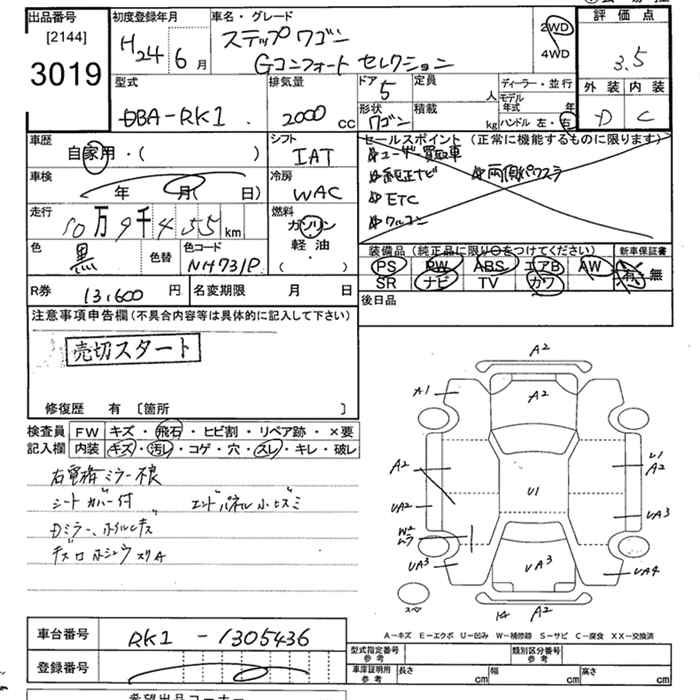 出品番号
[2144]
3019
初度登録年月
H24 6月
車名・グレード
ステップワゴン
Gコンフォートセレクション
2WD
4WD
評価点
3.5
外装 内装
D C
型式
DBA-RK1
排気量
2000 cc
ドア
5
定員
人
形状
ワゴン
積載
kg
ディーラー・並行
モデル年式 年
ハンドル 左・右
車歴
自家用・( )
シフト
IAT
セールスポイント (正常に機能するものに限ります)
ユーザー買取車
純正ナビ 両側パワスラ
ETC
ワルコン
車検
年 月( 日)
冷房
WAC
走行
10万9千455km
燃料
ガソリン
軽油
( ・ )
色
黒
色替
色コード
NH731P
装備品(純正品に限り○をつけてください)
新車保証書
PS PW ABS エアB AW
SR ナビ TV カワ
有・無
R券
13,600 円
名変期限 月 日
後日品
注意事項申告欄(不具合内容等は具体的に記入して下さい)
売切スタート
修復歴 有 [箇所 ]
検査員
記入欄
FW キズ・飛石・ヒビ割・リペア跡・×要
内装 キズ・汚レ・コゲ・穴・スレ・キレ・破レ
シートカバー付
A2
A1
A2
A2
U1
A2
U1
UA2
UA3
W2
UA3
UA3
UA4
A2
スペア
A−キズ E−エクボ U−凹み W−補修跡 S−サビ C−腐食 XX−交換済
車台番号
RK1-1305436
登録番号
型式指定番号
参考
類別区分番号
参考
車庫証明用
参考
長さ cm
幅 cm
高さ cm
希望出品コーナー